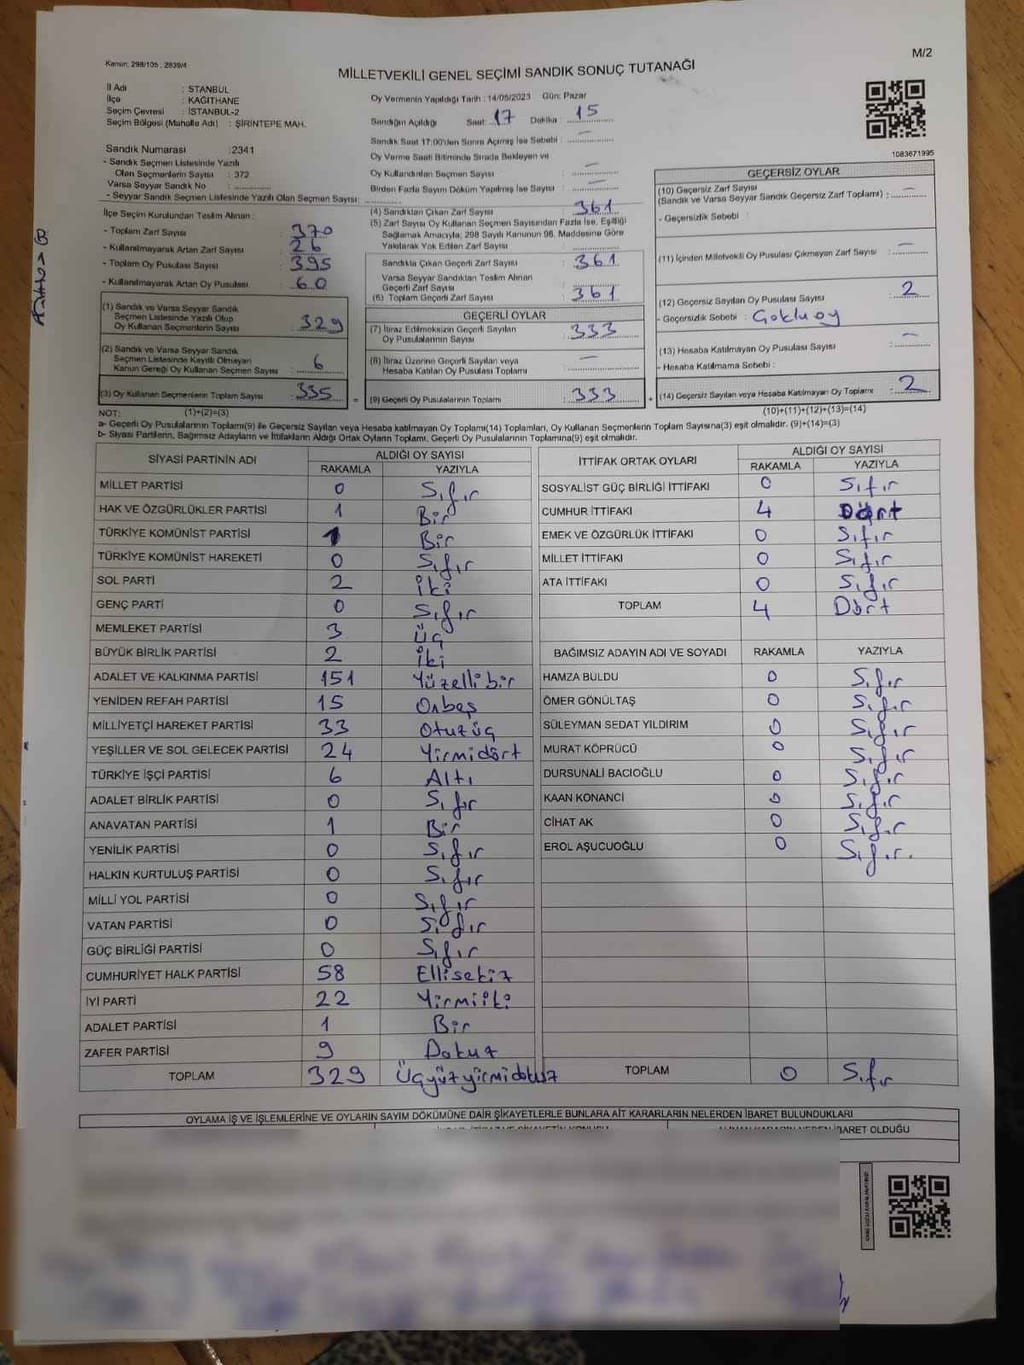 M/2
Kanun: 298/105 , 2839/4
MİLLETVEKİLİ GENEL SEÇİMİ SANDIK SONUÇ TUTANAĞI
İl Adı : İSTANBUL
İlçe : KAĞITHANE
Seçim Çevresi : İSTANBUL-2
Seçim Bölgesi (Mahalle Adı) : ŞİRİNTEPE MAH.
Oy Vermenin Yapıldığı Tarih : 14/05/2023 Gün: Pazar
Sandığın Açıldığı Saat: 17 Dakika : 15
Sandık Saat 17:00'den Sonra Açılmış İse Sebebi : —
Oy Verme Saati Bitiminde Sırada Bekleyen ve
Oy Kullandırılan Seçmen Sayısı : —
Birden Fazla Sayım Döküm Yapılmış İse Sayısı : —
1083671995
Sandık Numarası : 2341
- Sandık Seçmen Listesinde Yazılı
Olan Seçmenlerin Sayısı : 372
Varsa Seyyar Sandık No :
- Seyyar Sandık Seçmen Listesinde Yazılı Olan Seçmen Sayısı :
İlçe Seçim Kurulundan Teslim Alınan :
- Toplam Zarf Sayısı : 370
- Kullanılmayarak Artan Zarf Sayısı : 26
- Toplam Oy Pusulası Sayısı : 395
- Kullanılmayarak Artan Oy Pusulası : 60
(1) Sandık ve Varsa Seyyar Sandık
Seçmen Listesinde Yazılı Olup
Oy Kullanan Seçmenlerin Sayısı : 329
(2) Sandık ve Varsa Seyyar Sandık
Seçmen Listesinde Kayıtlı Olmayan
Kanun Gereği Oy Kullanan Seçmen Sayısı : 6
(3) Oy Kullanan Seçmenlerin Toplam Sayısı : 335
(4) Sandıktan Çıkan Zarf Sayısı : 361
(5) Zarf Sayısı Oy Kullanan Seçmen Sayısından Fazla İse, Eşitliği
Sağlamak Amacıyla, 298 Sayılı Kanunun 98. Maddesine Göre
Yakılarak Yok Edilen Zarf Sayısı :
Sandıkta Çıkan Geçerli Zarf Sayısı : 361
Varsa Seyyar Sandıktan Teslim Alınan
Geçerli Zarf Sayısı :
(6) Toplam Geçerli Zarf Sayısı : 361
GEÇERLİ OYLAR
(7) İtiraz Edilmeksizin Geçerli Sayılan
Oy Pusulalarının Sayısı : 333
(8) İtiraz Üzerine Geçerli Sayılan veya
Hesaba Katılan Oy Pusulası Toplamı : —
(9) Geçerli Oy Pusulalarının Toplamı : 333
GEÇERSİZ OYLAR
(10) Geçersiz Zarf Sayısı
(Sandık ve Varsa Seyyar Sandık Geçersiz Zarf Toplamı) : —
- Geçersizlik Sebebi :
(11) İçinden Milletvekili Oy Pusulası Çıkmayan Zarf Sayısı : —
(12) Geçersiz Sayılan Oy Pusulası Sayısı : 2
- Geçersizlik Sebebi : Çoklu oy
(13) Hesaba Katılmayan Oy Pusulası Sayısı : —
- Hesaba Katılmama Sebebi :
(14) Geçersiz Sayılan veya Hesaba Katılmayan Oy Toplamı : 2
NOT: (1)+(2)=(3) (10)+(11)+(12)+(13)=(14)
a- Geçerli Oy Pusulalarının Toplamı(9) ile Geçersiz Sayılan veya Hesaba katılmayan Oy Toplamı(14) Toplamları, Oy Kullanan Seçmenlerin Toplam Sayısına(3) eşit olmalıdır. (9)+(14)=(3)
b- Siyasi Partilerin, Bağımsız Adayların ve İttifakların Aldığı Ortak Oyların Toplamı, Geçerli Oy Pusulalarının Toplamına(9) eşit olmalıdır.
SİYASİ PARTİNİN ADI ALDIĞI OY SAYISI
RAKAMLA YAZIYLA
MİLLET PARTİSİ 0 Sıfır
HAK VE ÖZGÜRLÜKLER PARTİSİ 1 Bir
TÜRKİYE KOMÜNİST PARTİSİ 1 Bir
TÜRKİYE KOMÜNİST HAREKETİ 0 Sıfır
SOL PARTİ 2 İki
GENÇ PARTİ 0 Sıfır
MEMLEKET PARTİSİ 3 Üç
BÜYÜK BİRLİK PARTİSİ 2 İki
ADALET VE KALKINMA PARTİSİ 151 Yüzellibir
YENİDEN REFAH PARTİSİ 15 Onbeş
MİLLİYETÇİ HAREKET PARTİSİ 33 Otuzüç
YEŞİLLER VE SOL GELECEK PARTİSİ 24 Yirmidört
TÜRKİYE İŞÇİ PARTİSİ 6 Altı
ADALET BİRLİK PARTİSİ 0 Sıfır
ANAVATAN PARTİSİ 1 Bir
YENİLİK PARTİSİ 0 Sıfır
HALKIN KURTULUŞ PARTİSİ 0 Sıfır
MİLLİ YOL PARTİSİ 0 Sıfır
VATAN PARTİSİ 0 Sıfır
GÜÇ BİRLİĞİ PARTİSİ 0 Sıfır
CUMHURİYET HALK PARTİSİ 58 Ellisekiz
İYİ PARTİ 22 Yirmiiki
ADALET PARTİSİ 1 Bir
ZAFER PARTİSİ 9 Dokuz
TOPLAM 329 Üçyüzyirmidokuz
İTTİFAK ORTAK OYLARI ALDIĞI OY SAYISI
RAKAMLA YAZIYLA
SOSYALİST GÜÇ BİRLİĞİ İTTİFAKI 0 Sıfır
CUMHUR İTTİFAKI 4 Dört
EMEK VE ÖZGÜRLÜK İTTİFAKI 0 Sıfır
MİLLET İTTİFAKI 0 Sıfır
ATA İTTİFAKI 0 Sıfır
TOPLAM 4 Dört
BAĞIMSIZ ADAYIN ADI VE SOYADI RAKAMLA YAZIYLA
HAMZA BULDU 0 Sıfır
ÖMER GÖNÜLTAŞ 0 Sıfır
SÜLEYMAN SEDAT YILDIRIM 0 Sıfır
MURAT KÖPRÜCÜ 0 Sıfır
DURSUNALİ BACIOĞLU 0 Sıfır
KAAN KONANCİ 0 Sıfır
CİHAT AK 0 Sıfır
EROL AŞUCUOĞLU 0 Sıfır.
TOPLAM 0 Sıfır
OYLAMA İŞ VE İŞLEMLERİNE VE OYLARIN SAYIM DÖKÜMÜNE DAİR ŞİKAYETLERLE BUNLARA AİT KARARLARIN NELERDEN İBARET BULUNDUKLARI
İBARET OLDUĞU